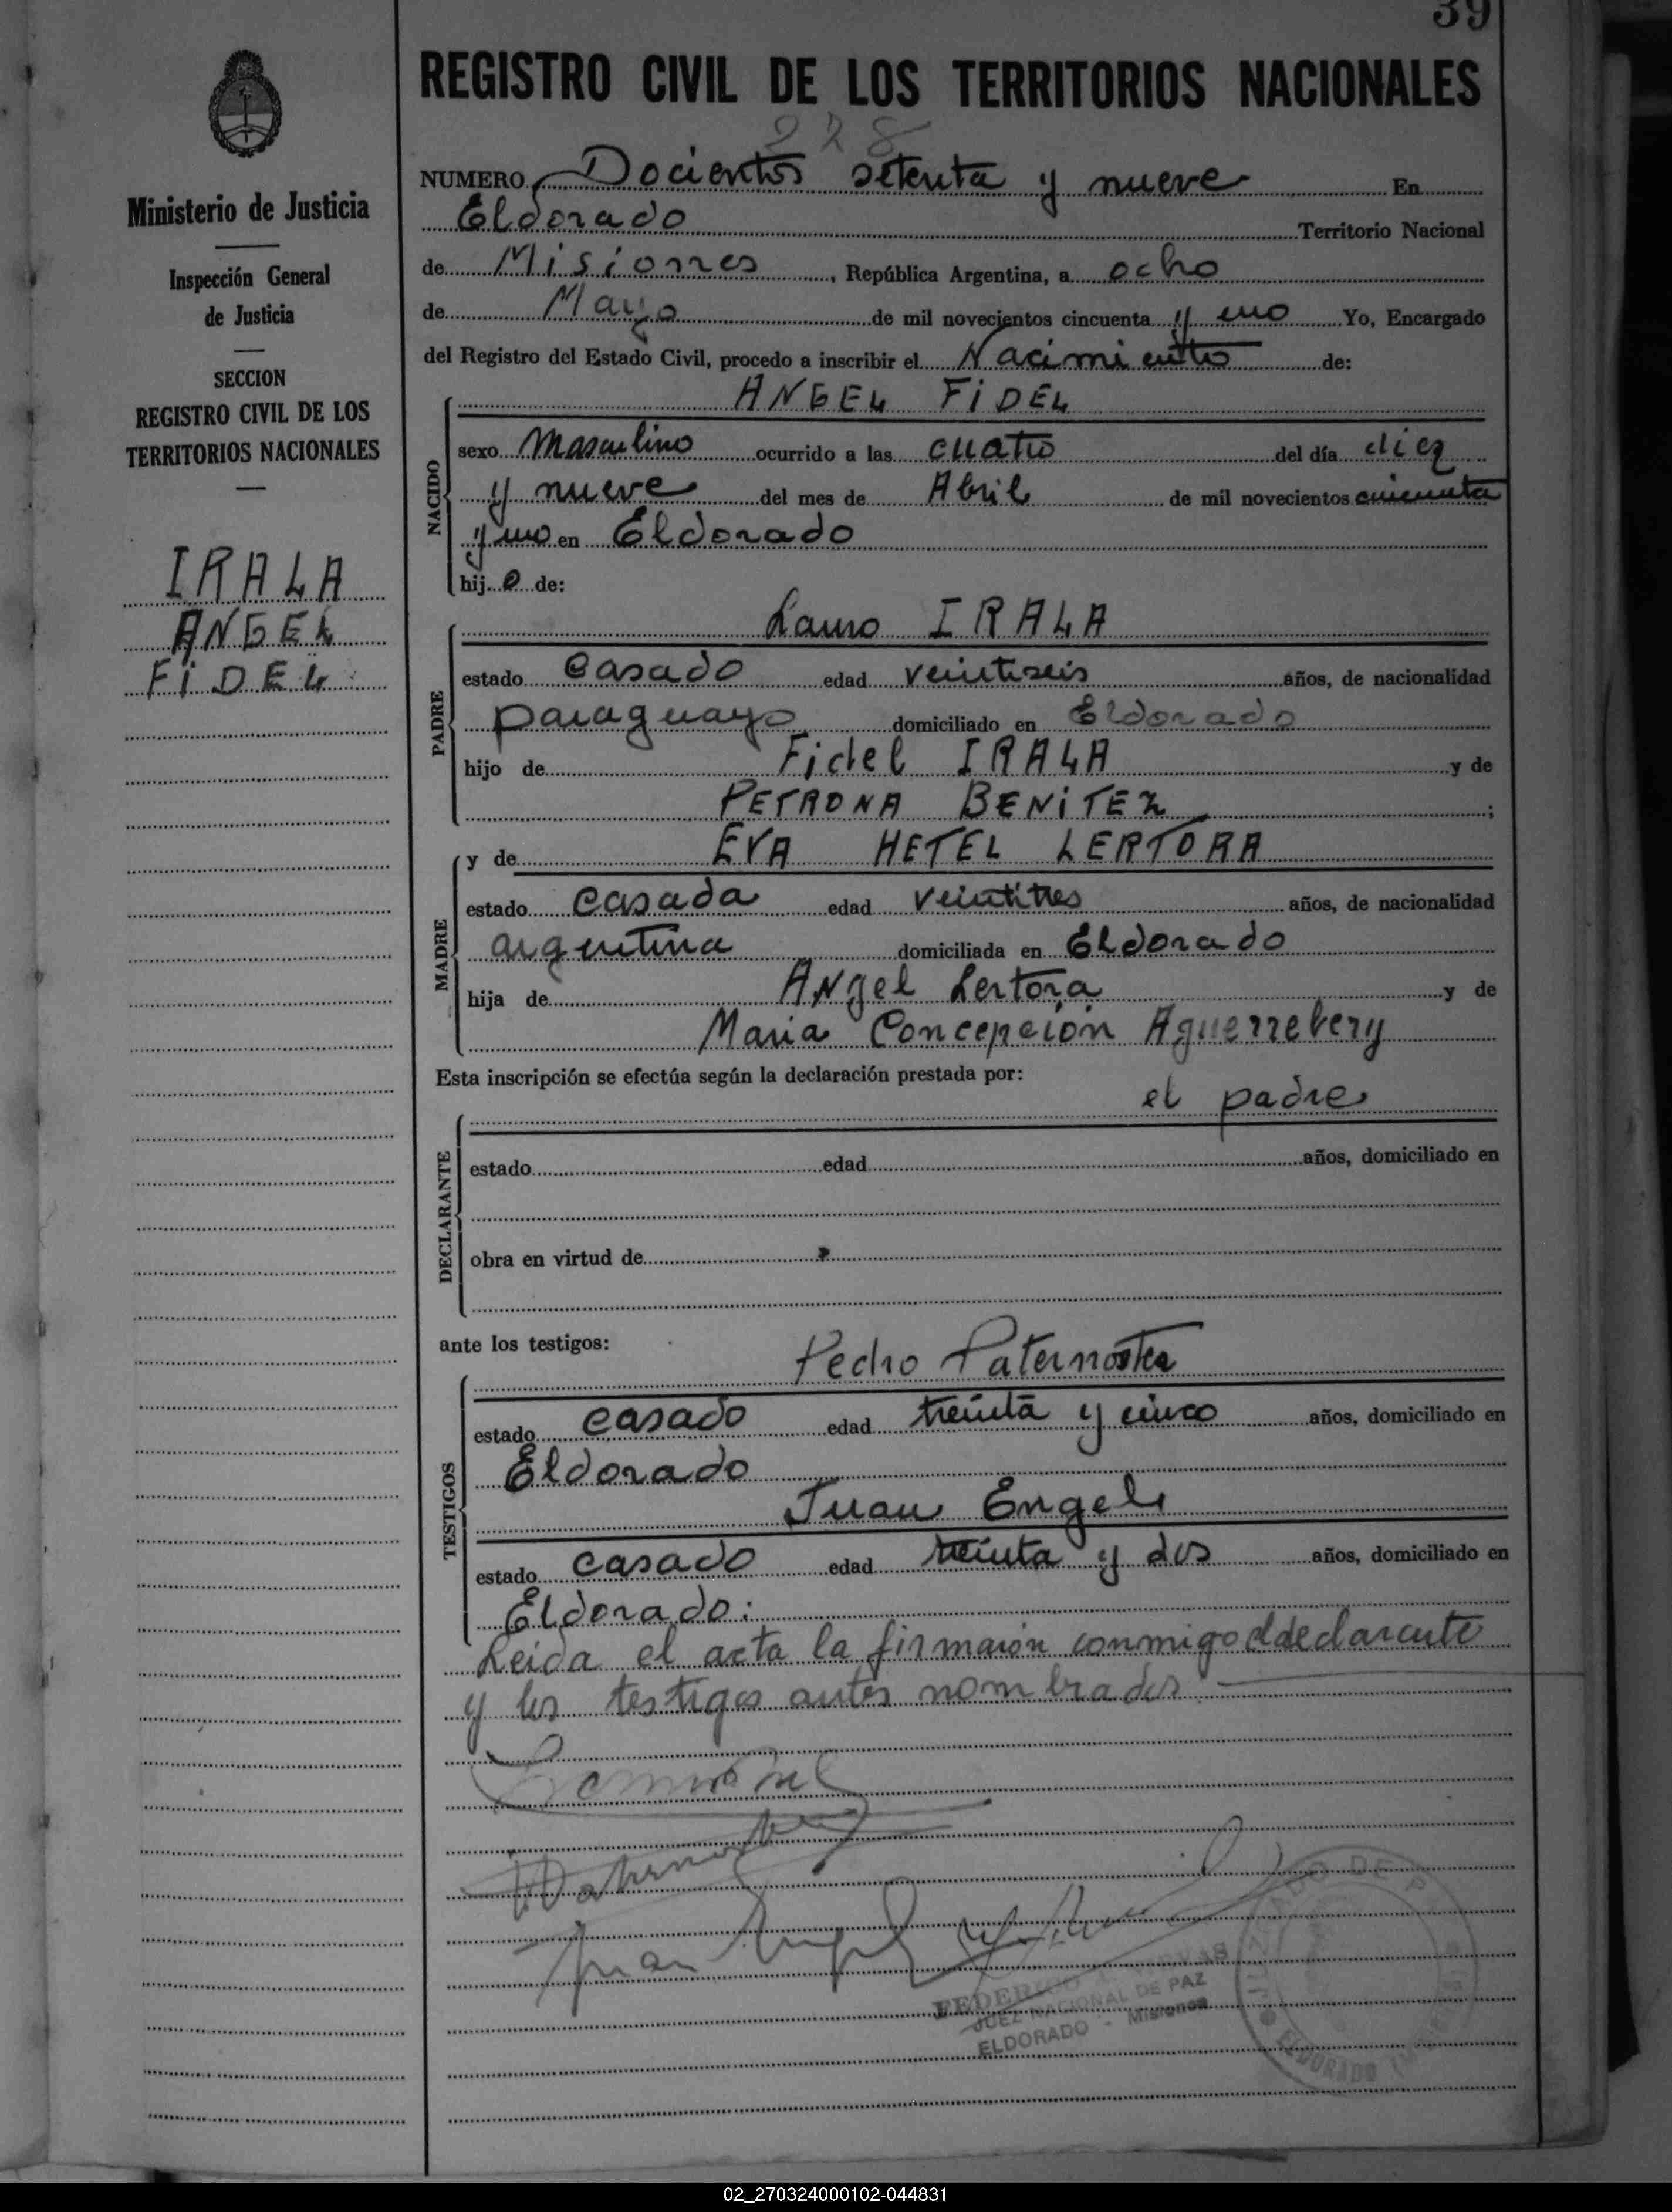 39
REGISTRO CIVIL DE LOS TERRITORIOS NACIONALES
Ministerio de Justicia
Inspección General
de Justicia
SECCION
REGISTRO CIVIL DE LOS
TERRITORIOS NACIONALES
IRALA
ANGEL
FIDEL
NUMERO Docientos setenta y nueve En
Eldorado Territorio Nacional
de Misiones, República Argentina, a ocho
de Mayo de mil novecientos cincuenta y uno Yo, Encargado
del Registro del Estado Civil, procedo a inscribir el Nacimiento de:
NACIDO
ANGEL FIDEL
sexo Masculino ocurrido a las cuatro del día diez
y nueve del mes de Abril de mil novecientos cincuenta
y uno en Eldorado
hijo de:
PADRE
Lauro IRALA
estado casado edad veintiseis años, de nacionalidad
paraguayo domiciliado en Eldorado
hijo de Fidel IRALA y de
PETRONA BENITEZ;
MADRE
y de EVA HETEL LERTORA
estado casada edad veintitres años, de nacionalidad
argentina domiciliada en Eldorado
hija de Angel Lertora y de
Maria Concepción Aguerrebery
Esta inscripción se efectúa según la declaración prestada por:
el padre
DECLARANTE
estado edad años, domiciliado en
obra en virtud de
ante los testigos:
TESTIGOS
Pedro Paternoster
estado casado edad treinta y cinco años, domiciliado en
Eldorado
Juan Engel
estado casado edad treinta y dos años, domiciliado en
Eldorado:
Leida el acta la firmaron conmigo el declarante
y los testigos antes nombrados.
Juan Engel
JUEZ NACIONAL DE PAZ
ELDORADO - Misiones
ELDORADO
02_270324000102-044831